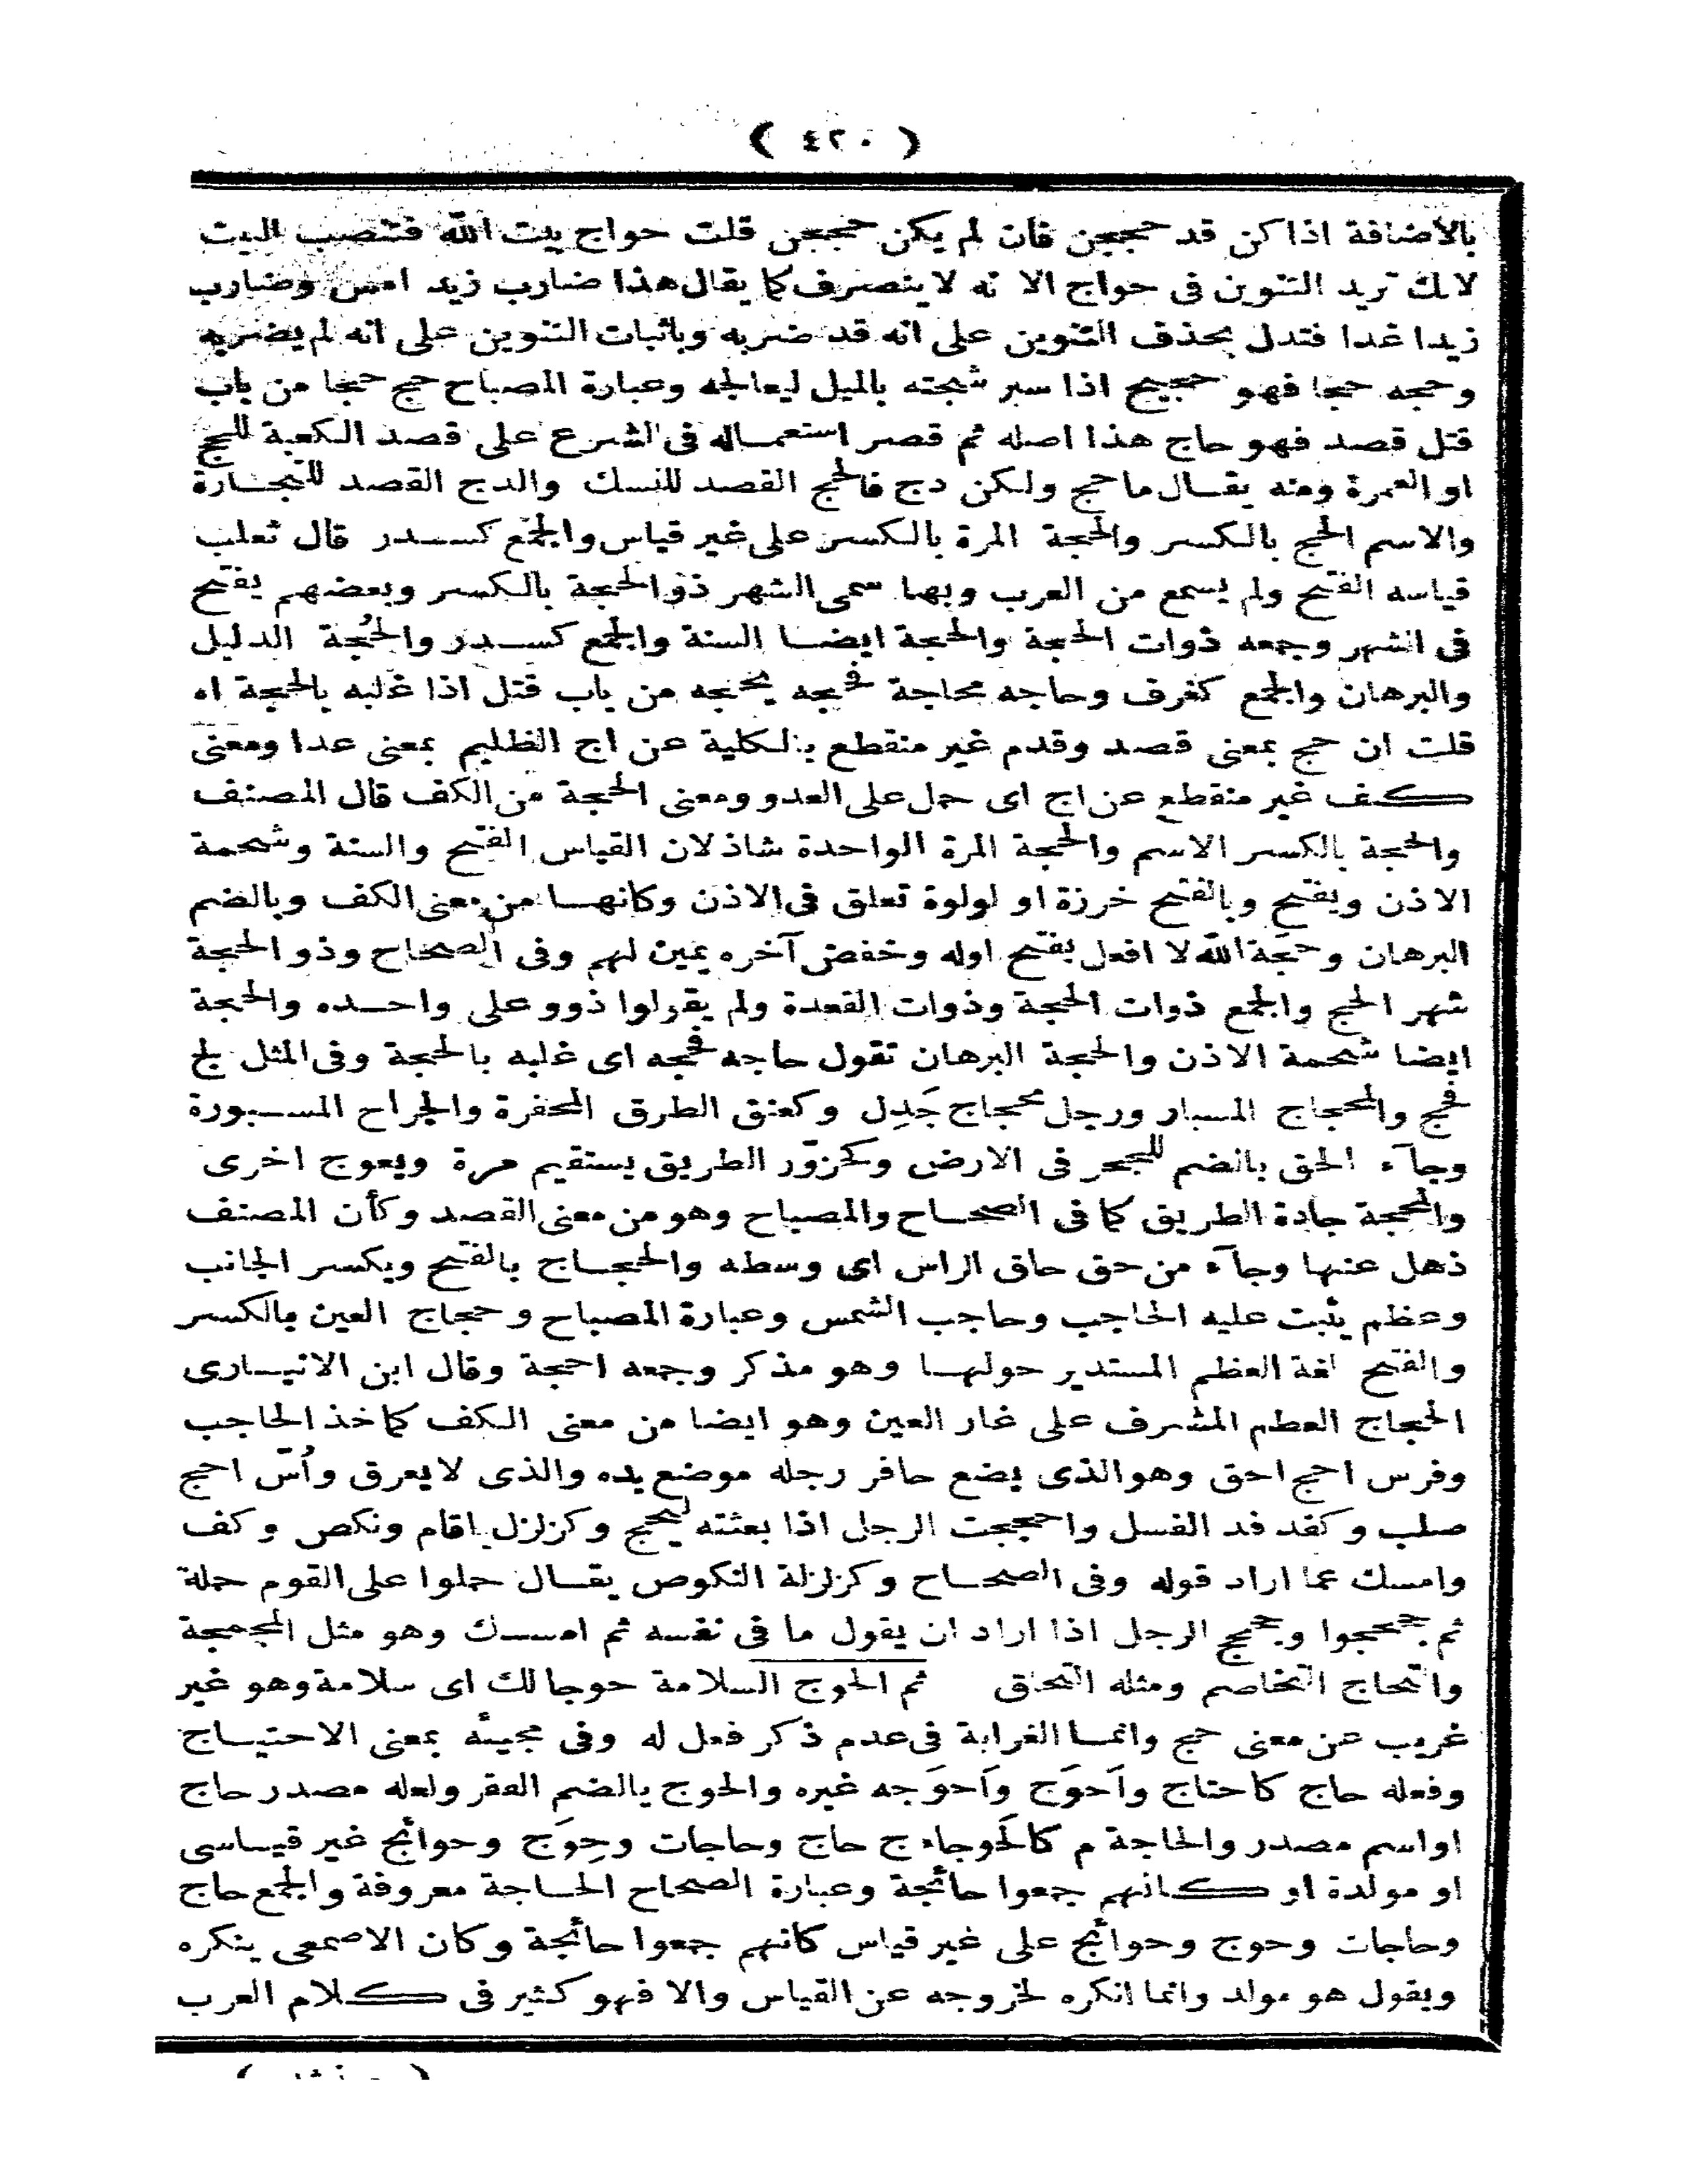 ( ٤٢٠ )
بالاضافة اذا كن قد حججن فان لم يكن حججن قلت حواج بيت الله فتنصب البيت
لانك تريد التنوين فى حواج الا انه لا ينصرف كما يقال هذا ضارب زيد امس وضارب
زيدا غدا فتدل بحذف التنوين على انه قد ضربه وباثبات التنوين على انه لم يضربه
وحجه حجا فهو حجيج اذا سبر شجته بالميل ليعالجه وعبارة المصباح حج حجا من باب
قتل قصد فهو حاج هذا اصله ثم قصر استعماله فى الشرع على قصد الكعبة للحج
او العمرة ومنه يقال ما حج ولكن دج فالحج القصد للنسك والدج القصد للتجارة
والاسم الحج بالكسر والحجة المرة بالكسر على غير قياس والجمع كسدر قال ثعلب
قياسه الفتح ولم يسمع من العرب وبها سمى الشهر ذو الحجة بالكسر وبعضهم يفتح
فى الشهر وجمعه ذوات الحجة والحجة ايضا السنة والجمع كسدر والحُجة الدليل
والبرهان والجمع كغرف وحاجه محاجة فحجه يحجه من باب قتل اذا غلبه بالحجة اه
قلت ان حج بمعنى قصد وقدم غير منقطع بالكلية عن اج الظليم بمعنى عدا ومعنى
كف غير منقطع عن اج اى حمل على العدو ومعنى الحجة من الكف قال المصنف
والحجة بالكسر الاسم والحجة المرة الواحدة شاذ لان القياس الفتح والسنة وشحمة
الاذن ويفتح وبالفتح خرزة او لولوة تعلق فى الاذن وكانها من معنى الكف وبالضم
البرهان وحجَة الله لا افعل بفتح اوله وخفض آخره يمين لهم وفى الصحاح وذو الحجة
شهر الحج والجمع ذوات الحجة وذوات القعدة ولم يقولوا ذوو على واحده والحجة
ايضا شحمة الاذن والحجة البرهان تقول حاجه فحجه اى غلبه بالحجة وفى المثل لج
فحج والمحجاج المسبار ورجل محجاج جَدِل وكعنق الطرق المحفرة والجراح المسبورة
وجآء الحق بالضم للجحر فى الارض وكحزوّر الطريق يستقيم مرة ويعوج اخرى
والمحجة جادة الطريق كما فى الصحاح والمصباح وهو من معنى القصد وكأن المصنف
ذهل عنها وجآء من حق حاق الراس اى وسطه والحجاج بالفتح ويكسر الجانب
وعظم ينبت عليه الحاجب وحاجب الشمس وعبارة المصباح وحجاج العين بالكسر
والفتح لغة العظم المستدير حولها وهو مذكر وجمعه احجة وقال ابن الانبارى
الحجاج العظم المشرف على غار العين وهو ايضا من معنى الكف كماخذ الحاجب
وفرس احج احق وهو الذى يضع حافر رجله موضع يده والذى لا يعرق ورأس احج
صلب وكفد فد الفسل واحججت الرجل اذا بعثته ليحج وكزلزل اقام ونكص وكف
وامسك عما اراد قوله وفى الصحاح وكزلزلة النكوص يقال حملوا على القوم حملة
ثم حجحجوا وحجحج الرجل اذا اراد ان يقول ما فى نفسه ثم امسك وهو مثل المجمجة
والتحاج التخاصم ومثله التحاق ثم الحوج السلامة حوجا لك اى سلامة وهو غير
غريب عن معنى حج وانما الغرابة فى عدم ذكر فعل له وفى مجيئه بمعنى الاحتياج
وفعله حاج كاحتاج واَحوَج واَحوَجه غيره والحوج بالضم الفقر ولعله مصدر حاج
او اسم مصدر والحاجة م كالحَوجاء ج حاج وحاجات وحِوَج وحوائج غير قياسى
او مولدة او كانهم جمعوا حائجة وعبارة الصحاح الحاجة معروفة والجمع حاج
وحاجات وحوج وحوائج على غير قياس كانهم جمعوا حائجة وكان الاصمعى ينكره
ويقول هو مولد وانما انكره لخروجه عن القياس والا فهو كثير فى كلام العرب